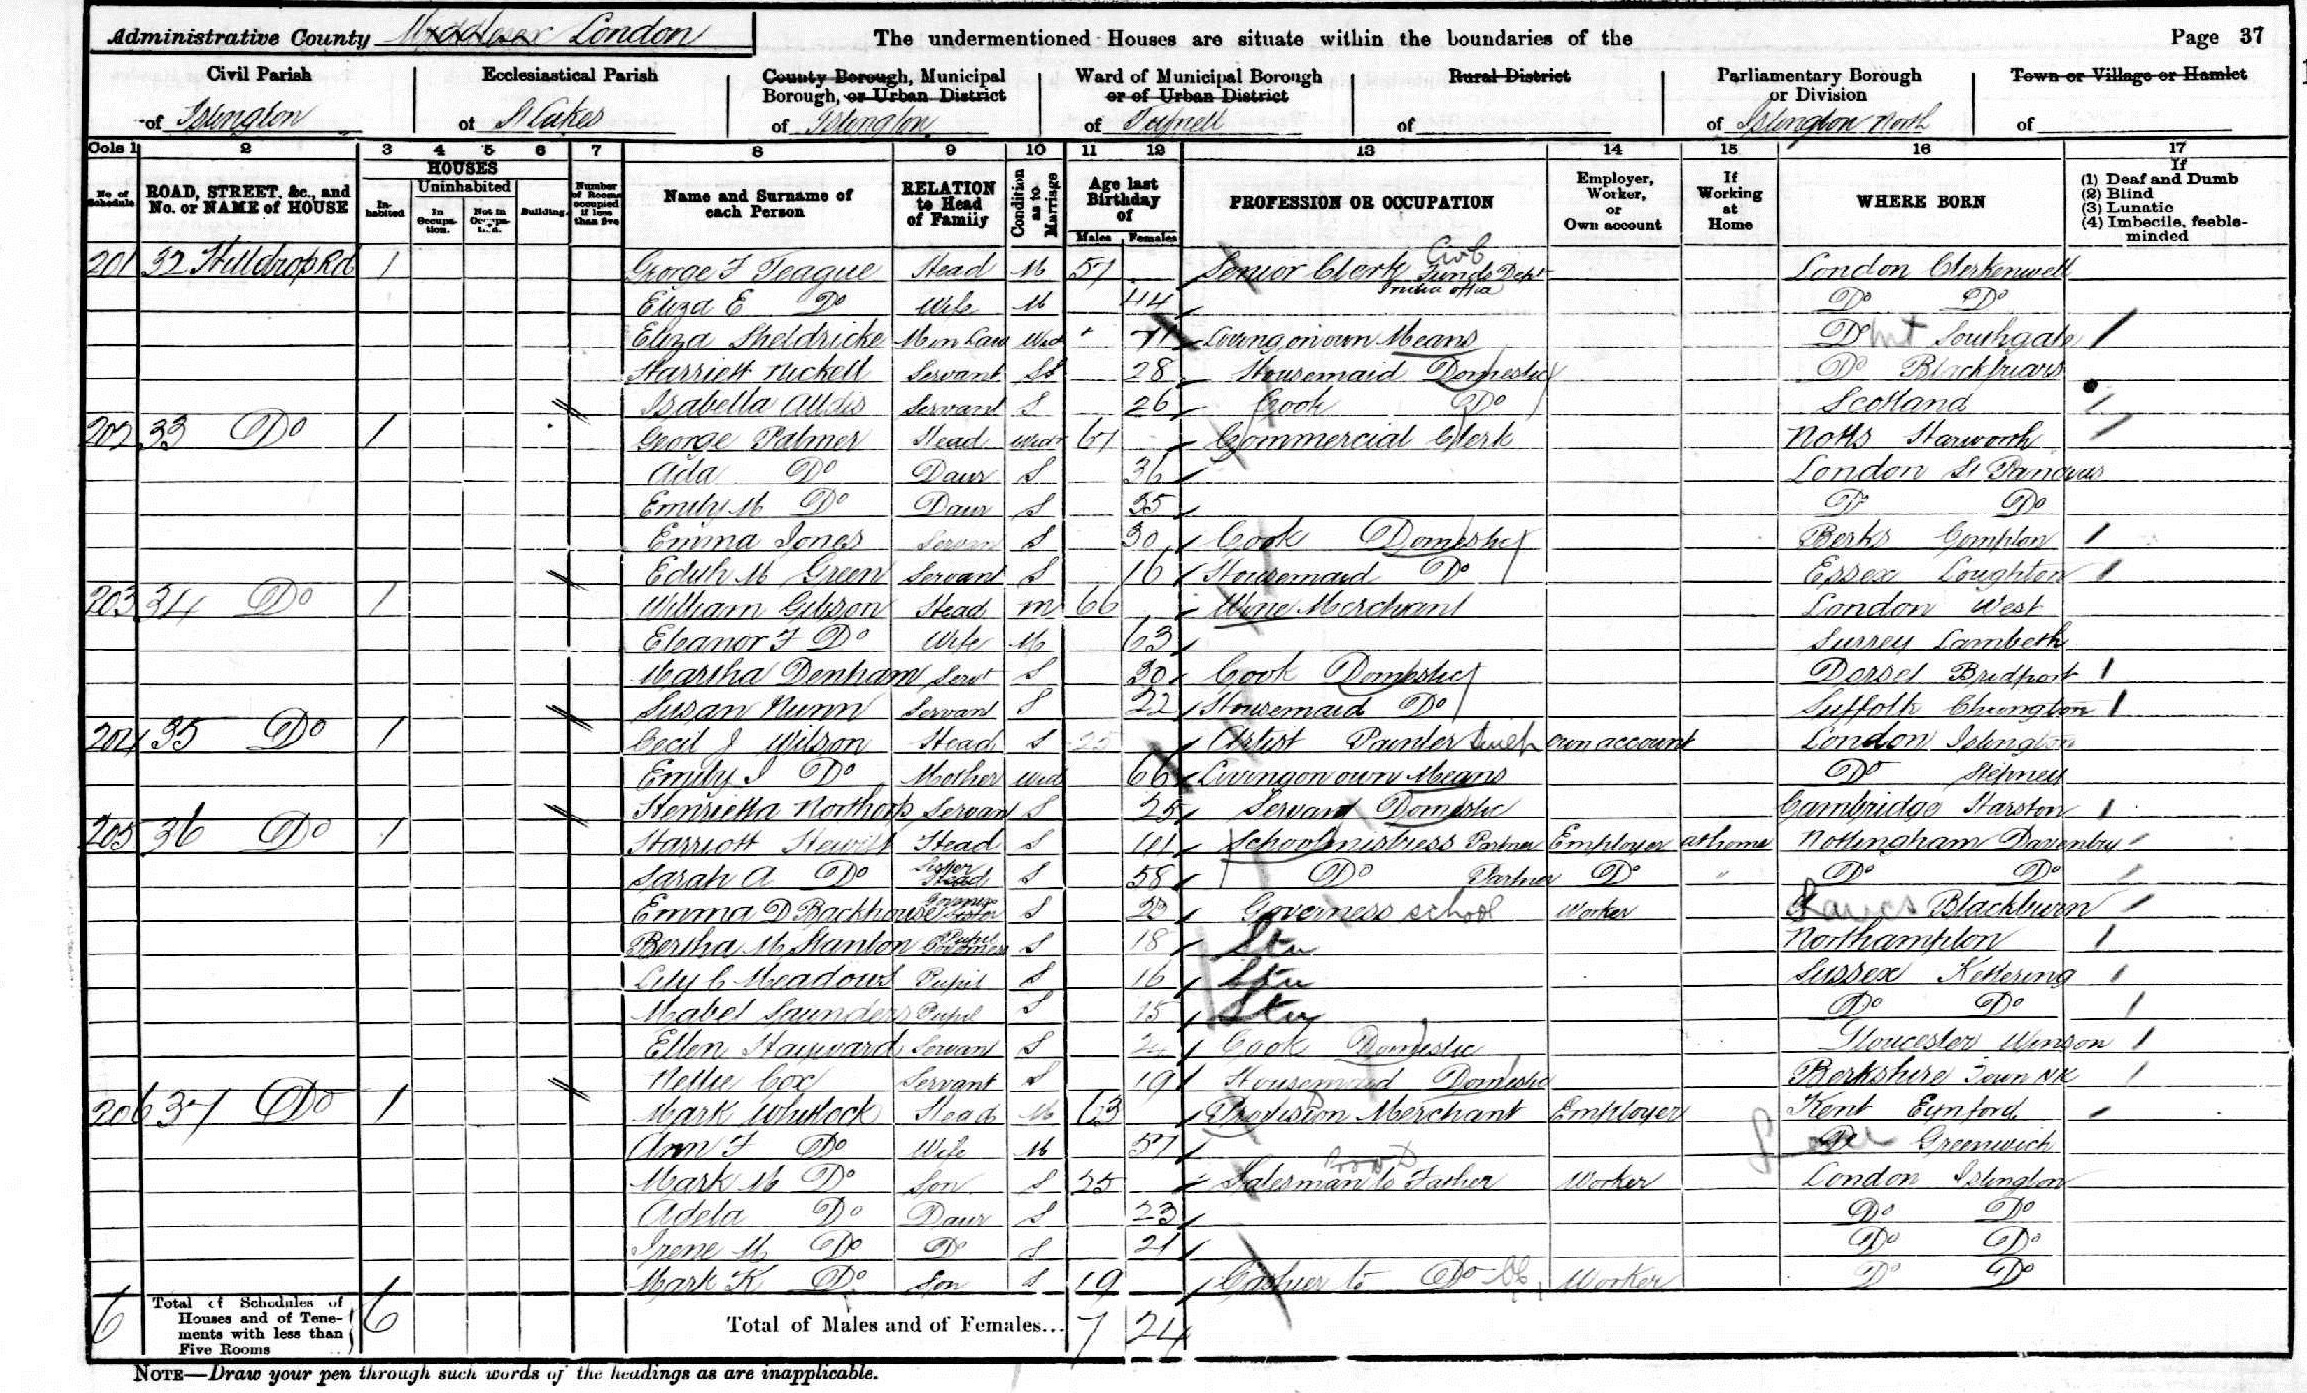 Administrative County Middlesex London The undermentioned Houses are situate within the boundaries of the Page 37
Civil Parish Ecclesiastical Parish County Borough, Municipal Borough, or Urban District Ward of Municipal Borough or of Urban District Rural District Parliamentary Borough or Division Town or Village or Hamlet
of Islington of St Lukes of Islington of Tufnell of of Islington North of
Cols 1 2 3 4 5 6 7 8 9 10 11 12 13 14 15 16 17
No. of Schedule ROAD, STREET, &c., and No. or NAME of HOUSE HOUSES Inhabited Uninhabited In Occupation. Not in Occupation. Building. Number of Rooms occupied if less than five Name and Surname of each Person RELATION to Head of Family Condition as to Marriage Age last Birthday of Males Females PROFESSION OR OCCUPATION Employer, Worker, or Own account If Working at Home WHERE BORN If (1) Deaf and Dumb (2) Blind (3) Lunatic (4) Imbecile, feeble-minded
201 32 Hilldrop Rd 1 George F Teague Head M 57 Senior Clerk Funds Dept India Office London Clerkenwell
Eliza E Do Wife M 44 Do Do
Eliza Sheldricke M in Law Wid 71 Living on own Means Do Southgate
Harriett Nickell Servant S 28 Housemaid Domestic Do Blackfriars
Isabella Aldis Servant S 26 Cook Do Scotland
202 33 Do 1 George Palmer Head Widr 61 Commercial Clerk Notts Harworth
Ada Do Daur S 36 London St Pancras
Emily M Do Daur S 35 Do Do
Emma Jones Servan S 30 Cook Domestic Berks Compton
Edith M Green Servant S 16 Housemaid Do Essex Loughton
203 34 Do 1 William Gibson Head M 66 Wine Merchant London West
Eleanor F Do Wife M 63 Surrey Lambeth
Martha Denham Servt S 30 Cook Domestic Dorset Bridport
Susan Nunn Servant S 22 Housemaid Do Suffolk Chevington
204 35 Do 1 Cecil J Wilson Head S 25 Artist Painter own account London Islington
Emily I Do Mother Wid 66 Living on own Means Do Stepney
Henrietta Northorp Servant S 25 Servant Domestic Cambridge Harston
205 36 Do 1 Harriott Hewitt Head S 61 Schoolmistress Partner Employer at home Nottingham Daventry
Sarah A Do Sister Head S 58 Do Partner Do " Do Do
Emma D Backhouse S 23 Governess school Worker Lancs Blackburn
Bertha M Stanton Pupil Governess S 18 Stu Northampton
Lily C Meadows Pupil S 16 Stu Sussex Kettering
Mabel Saunders Pupil S 15 Stu Do Do
Ellen Hayward Servant S 24 Cook Domestic Gloucester Winson
Nellie Cox Servant S 19 Housemaid Domestic Berkshire Town NK
206 37 Do 1 Mark Whitlock Head M 63 Provision Merchant Employer Kent Eynford
Ann F Do Wife M 57 Do Greenwich
Mark M Do Son S 25 Salesman to Father Worker London Islington
Adela Do Daur S 23 Do Do
Irene M Do Do S 21 Do Do
Mark K Do Son S 19 Cashier to Do Worker Do Do
6 Total of Schedules of Houses and of Tenements with less than Five Rooms 6 Total of Males and of Females... 7 24
NOTE—Draw your pen through such words of the headings as are inapplicable.